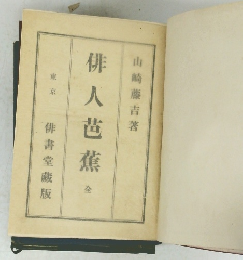 山崎藤吉著
俳人芭蕉 全
東京 俳書堂蔵版